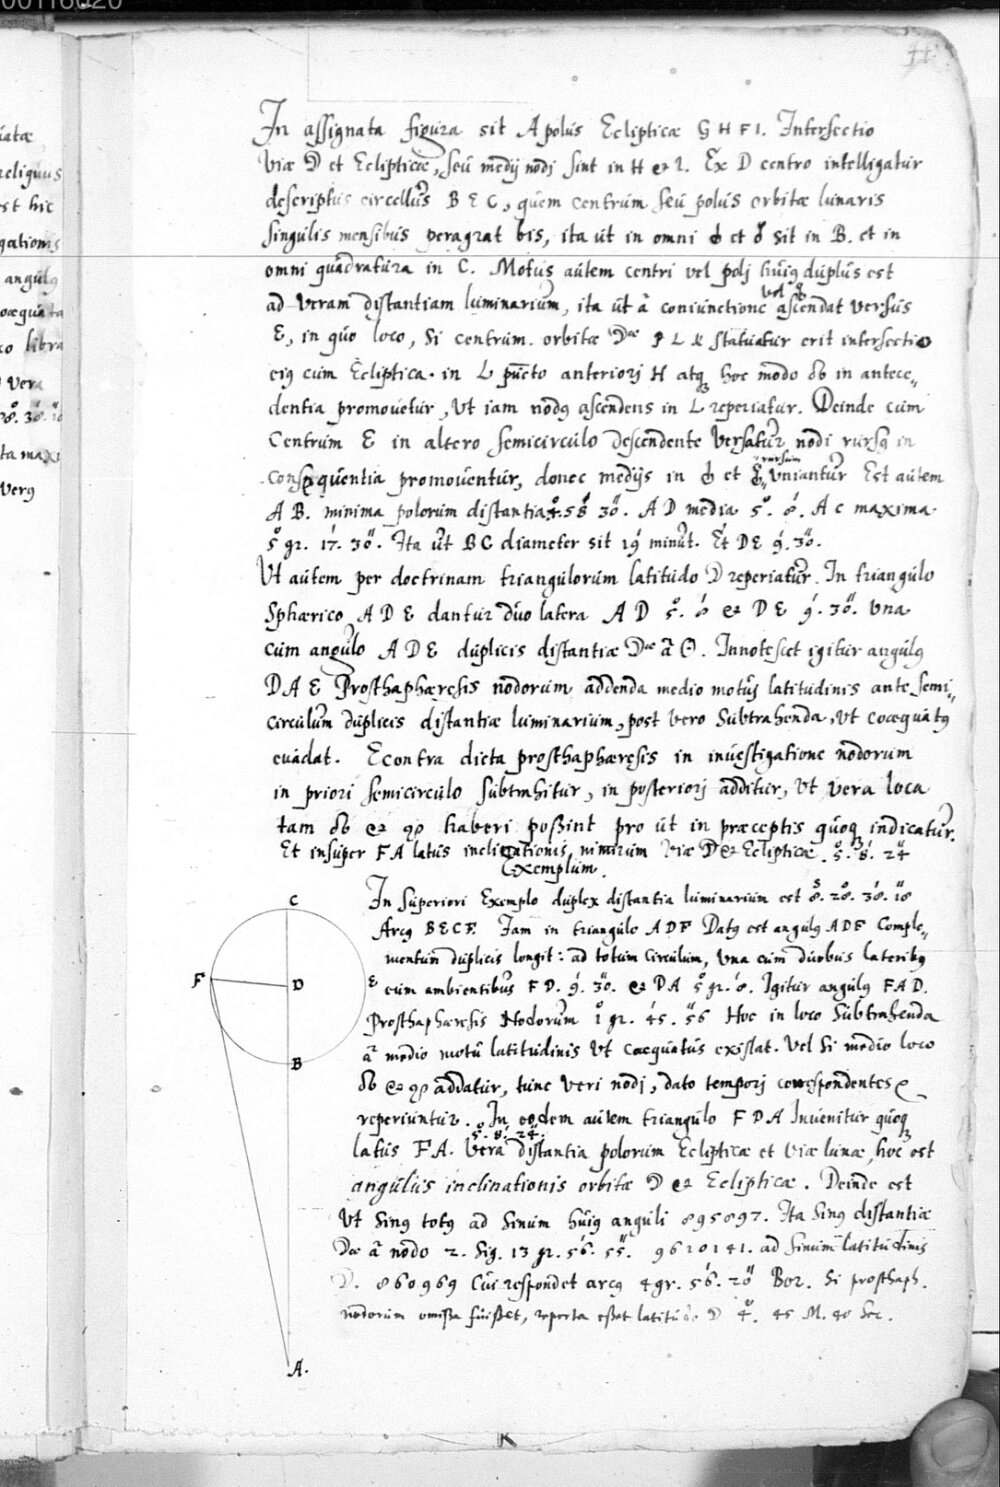 00118020
44
In assignata figura sit A polus Eclipticæ G H F I. Intersectio
Viæ ☽ et Eclipticæ, seu medij nodj sint in H et I. Ex D centro intelligatur
descriptus circellus B E C, quem centrum seu polus orbitæ lunaris
singulis mensibus peragrat bis, ita ut in omni ☌ et ☍ sit in B. et in
omni quadratura in C. Motus autem centri vel polj huiꝰ duplus est
vel ☍
ad veram distantiam luminarium, ita ut à coniunctione ascendat versus
E, in quo loco, si centrum orbitæ ☽æ P L K statuatur erit intersectio
eiꝰ cum Ecliptica in L pūcto anteriorj H atqꝫ hoc modo ☊ in antece„
dentia promovetur, Ut iam nodꝰ ascendens in L reperiatur. Deinde cum
Centrum E in altero semicirculo descendente versatur, nodi rursꝰ in
rursum
consequentia promoventur, donec medijs in ☌ et ☍ uniantur Est autem
A B. minima polorum distantia 4. 58 30. A D media 5°. 0. A C maxima
5 gr. 17. 30. Ita ut B C diameter sit 19 minut. Et D E 9. 30.
Ut autem per doctrinam triangulorum latitudo ☽ reperiatur. In triangulo
Sphærico A D E dantur duo latera A D 5. 0 et D E 9. 30. una
cum angulo A D E duplicis distantiæ ☽æ à ☉. Innotescet igitur angulꝰ
D A E Prosthaphæresis nodorum addenda medio motuj latitudinis ante semi„
circulum duplicis distantiæ luminarium, post vero subtrahenda, ut coæquatꝰ
evadat. Econtra dicta prosthaphæresis in investigatione nodorum
in priori semicirculo subtrahitur, in posteriorj additur, ut vera loca
tam ☊ et ☋ haberi possint pro ut in præceptis quoqꝫ indicatur.
Et insuper F A latus inclinationis nimirum Viæ ☽ et Eclipticæ. 5. 8. 24
Exemplum.
In superiori Exemplo duplex distantia luminarium est 8. 20. 30. 10
Arcꝰ B E C F. Iam in triangulo A D F Datꝰ est angulꝰ A D F Comple„
mentum duplicis longit: ad totum circulum, una cum duobus lateribꝰ
eum ambientibus F D. 9. 30. et D A 5 gr. 0. Igitur angulꝰ F A D.
Prosthaphæresis Nodorum 1 gr. 45. 56 Hoc in loco subtrahenda
à medio motu latitudinis ut coæquatus existat. Vel si medio loco
☊ et ☋ addatur, tunc veri nodj, dato temporj correspondentes
reperiuntur. In eodem autem triangulo F D A Invenitur quoqꝫ
5. 8. 24.
latus F A. Vera distantia polorum Eclipticæ et viæ lunæ, hoc est
angulus inclinationis orbitæ ☽ et Eclipticæ. Deinde est
Ut Sinꝰ totꝰ ad Sinum huiꝰ anguli 895897. Ita Sinꝰ distantiæ
☽æ à nodo 2. Sig. 13 gr. 56. 55. 9610141. ad Sinum latitudinis
☽. 860969 Cui respondet arcꝰ 4 gr. 56. 20 Bor. Si prosthaph.
nodorum omissa fuisset, reperta esset latitudo ☽ 4. 45 M. 40 Sec.
C
F
D
E
B
A.
K